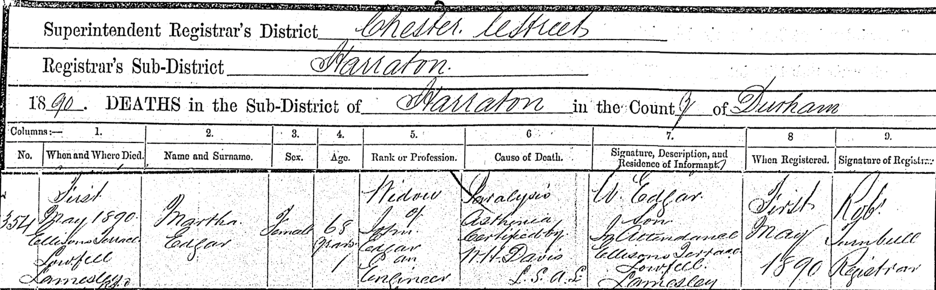 Superintendent Registrar's District Chester le Street
Registrar's Sub-District Harraton.
1890. DEATHS in the Sub-District of Harraton in the County of Durham
Columns:— 1. 2. 3. 4. 5. 6 7. 8 9.
No. When and Where Died. Name and Surname. Sex. Age. Rank or Profession. Cause of Death. Signature, Description, and Residence of Informant. When Registered. Signature of Registrar
354
First
May 1890.
Ellisons Terrace
Lowfell
Lamesley
Martha
Edgar
Female
68
years
Widow
of
John
Edgar
an
Engineer
Paralysis
Asthma
Certified by
W.H. Davis
L.S.A.
W. Edgar
Son
In Attendance
Ellisons Terrace
Lowfell.
Lamesley
First
May
1890
Robt
Turnbull
Registrar